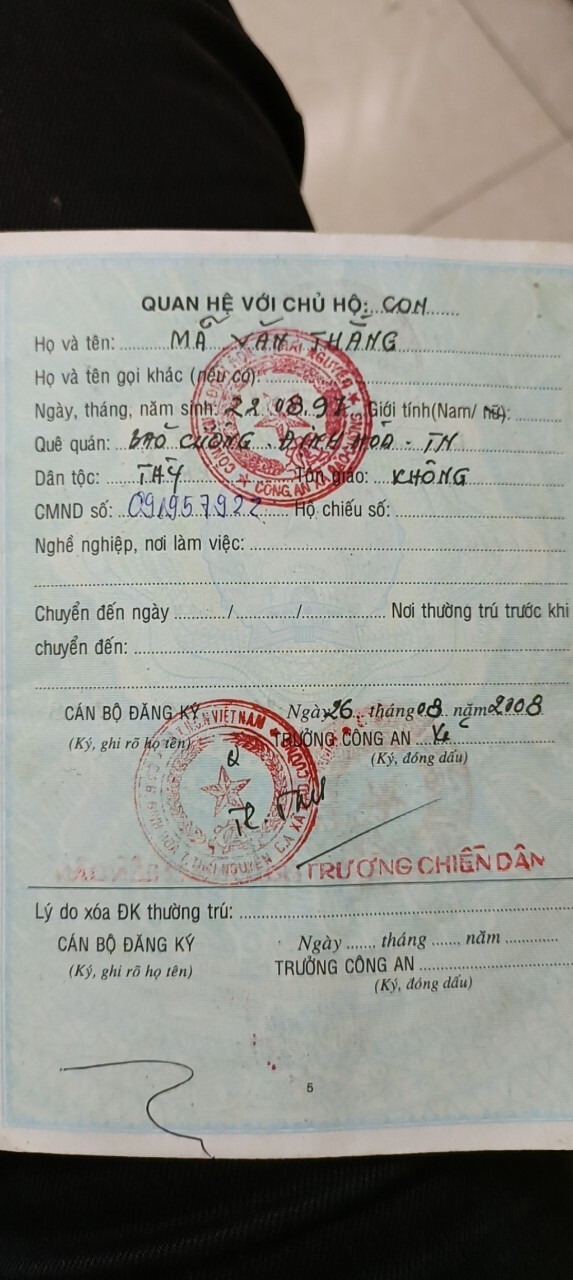 QUAN HỆ VỚI CHỦ HỘ: CON
Họ và tên: MÃ VĂN THẮNG
Họ và tên gọi khác (nếu có):
Ngày, tháng, năm sinh: 22.08.97 Giới tính(Nam/ nữ):
Quê quán: BẢO CƯỜNG. ĐỊNH HOÁ - TN
Dân tộc: TÀY Tôn giáo: KHÔNG
CMND số: 091957922 Hộ chiếu số:
Nghề nghiệp, nơi làm việc:
Chuyển đến ngày ........../............/............... Nơi thường trú trước khi
chuyển đến:
CÁN BỘ ĐĂNG KÝ Ngày 26 tháng 08 năm 2008
(Ký, ghi rõ họ tên) TRƯỞNG CÔNG AN
(Ký, đóng dấu)
TRƯƠNG CHIẾN DÂN
Lý do xóa ĐK thường trú:
CÁN BỘ ĐĂNG KÝ Ngày ....... tháng ....... năm ...........
(Ký, ghi rõ họ tên) TRƯỞNG CÔNG AN
(Ký, đóng dấu)
5